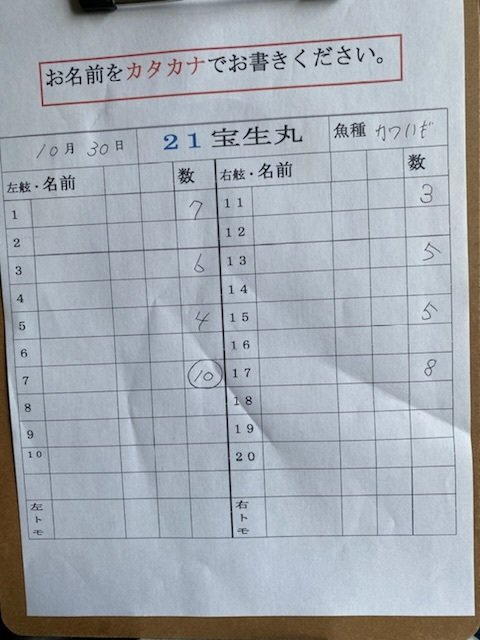 お名前をカタカナでお書きください。
10月 30日 21宝生丸 魚種 カワハギ
左舷・名前 数 右舷・名前 数
1 7 11 3
2 12
3 6 13 5
4 14
5 4 15 5
6 16
7 10 17 8
8 18
9 19
10 20
左トモ 右トモ